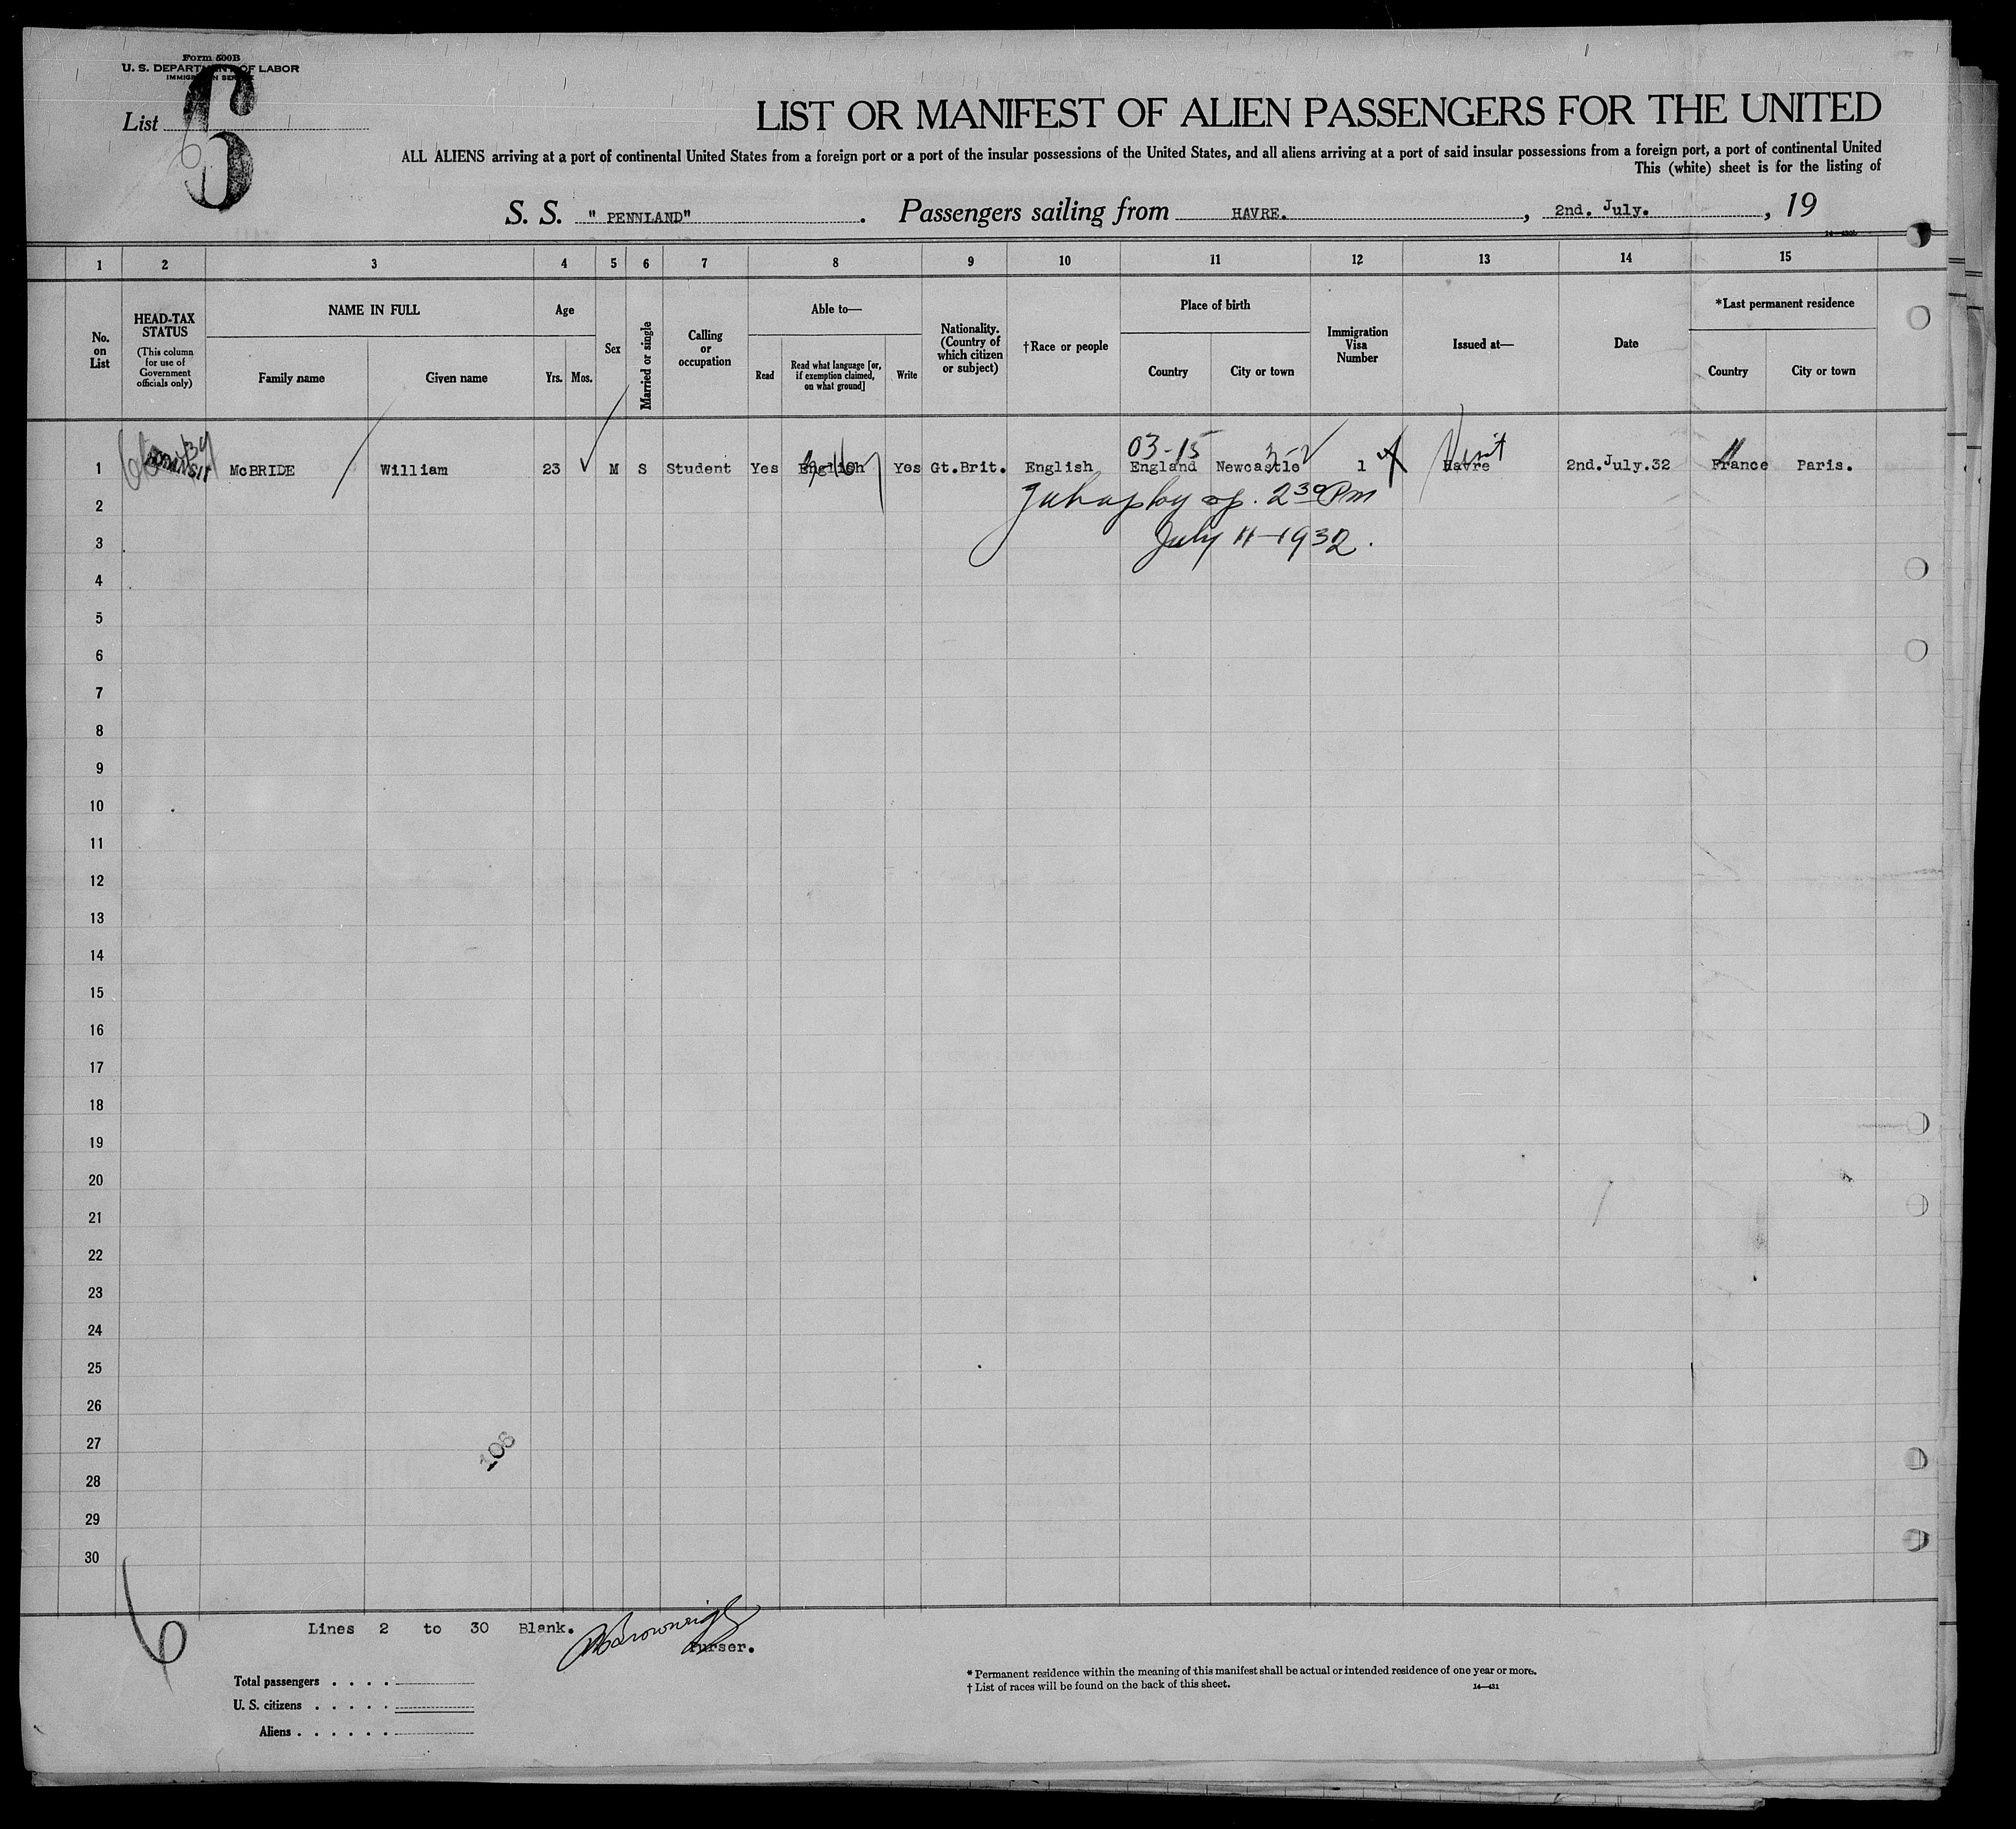 Form 500B
U. S. DEPARTMENT OF LABOR
IMMIGRATION SERVICE
List 6
LIST OR MANIFEST OF ALIEN PASSENGERS FOR THE UNITED
ALL ALIENS arriving at a port of continental United States from a foreign port or a port of the insular possessions of the United States, and all aliens arriving at a port of said insular possessions from a foreign port, a port of continental United
This (white) sheet is for the listing of
S. S. " PENNLAND" . Passengers sailing from HAVRE. , 2nd. July. , 19
1 2 3 4 5 6 7 8 9 10 11 12 13 14 15
No. on List
HEAD-TAX STATUS
(This column for use of Government officials only)
NAME IN FULL
Family name
Given name
Age
Yrs. Mos.
Sex
Married or single
Calling or occupation
Able to—
Read
Read what language [or, if exemption claimed, on what ground]
Write
Nationality. (Country of which citizen or subject)
†Race or people
Place of birth
Country
City or town
Immigration Visa Number
Issued at—
Date
*Last permanent residence
Country
City or town
03-15
1 TRANSIT McBRIDE William 23 M S Student Yes English Yes Gt.Brit. English England Newcastle 1 Havre Visit 2nd.July.32 France Paris.
2 2 30 Pm
3 July 11-1932.
4
5
6
7
8
9
10
11
12
13
14
15
16
17
18
19
20
21
22
23
24
25
26
27
106
28
29
30
6
Lines 2 to 30 Blank.
Purser.
Total passengers . . . .
U. S. citizens . . . . .
Aliens . . . . . .
* Permanent residence within the meaning of this manifest shall be actual or intended residence of one year or more.
† List of races will be found on the back of this sheet.
14—431